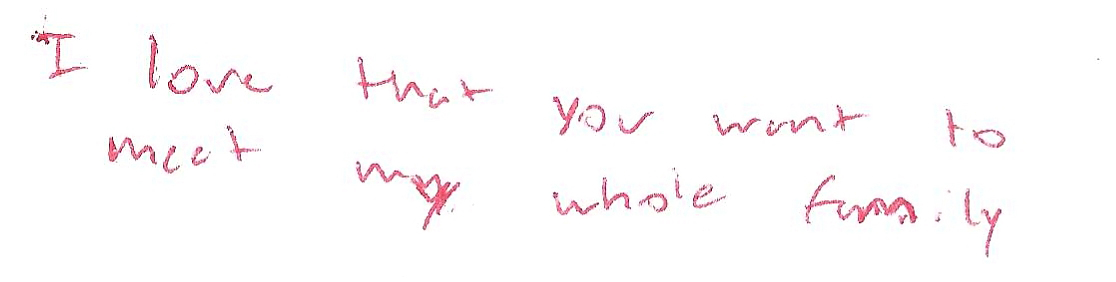 I love that you want to
meet my whole family